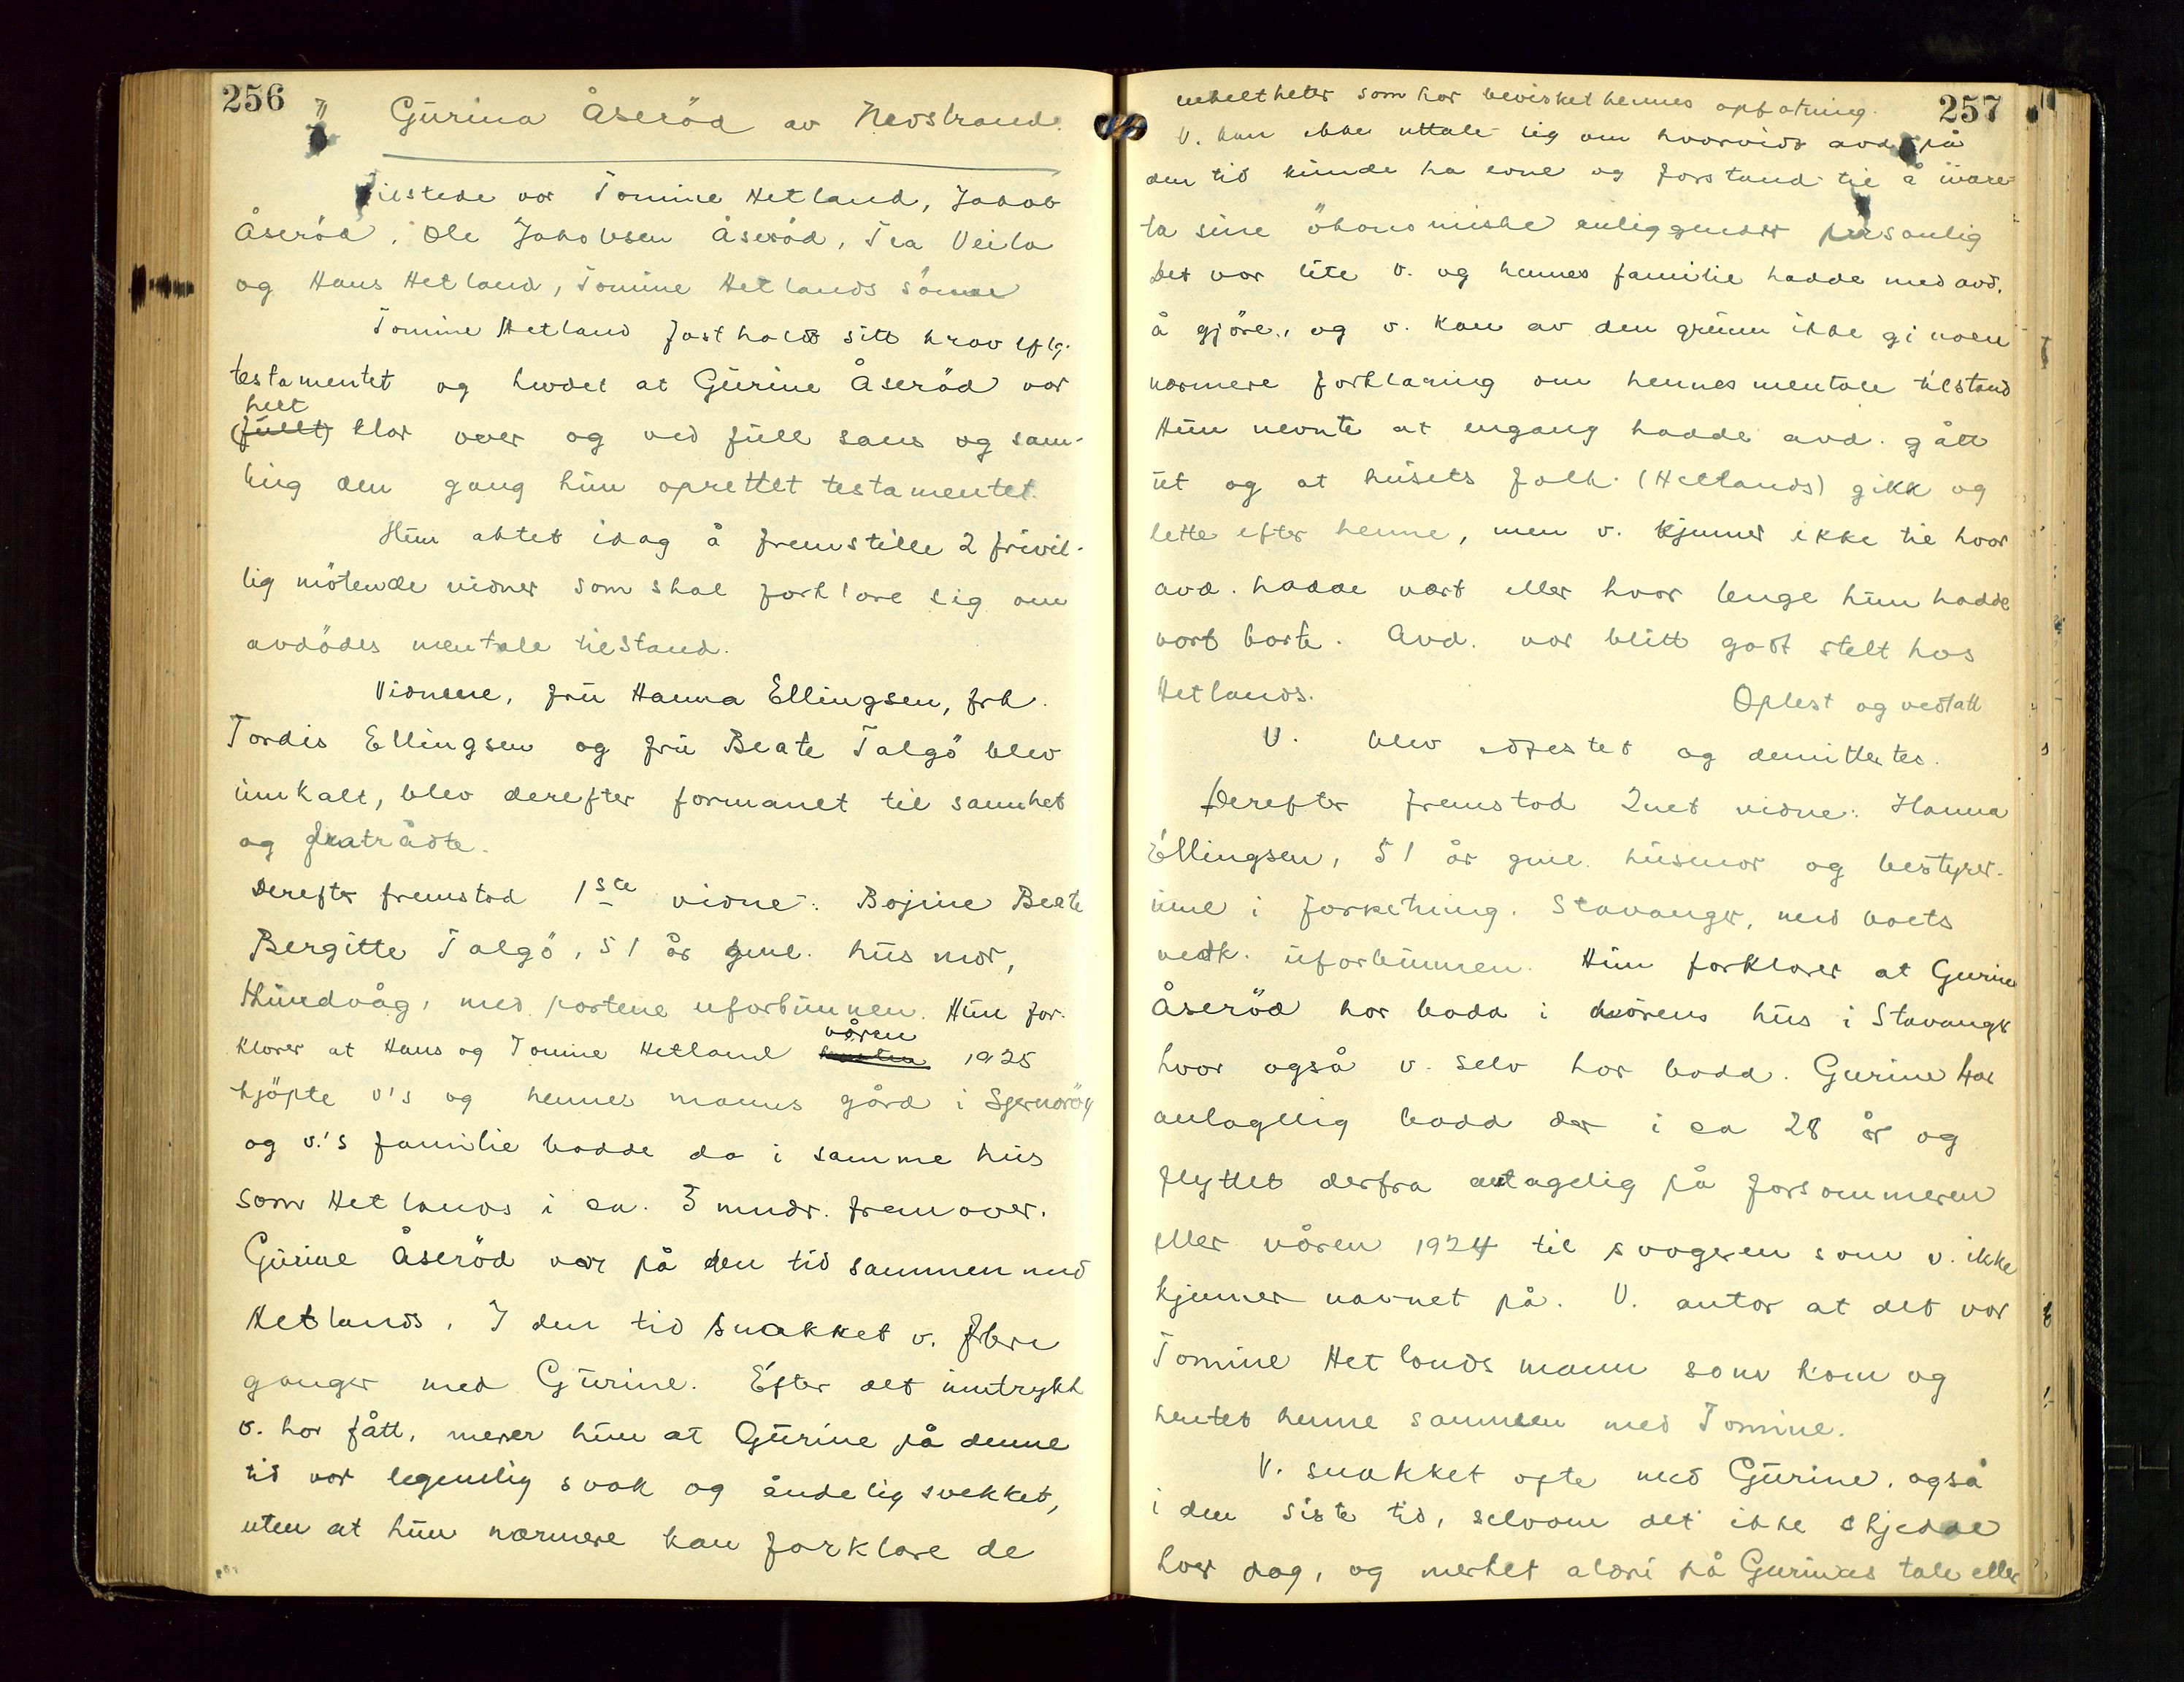 256
" Gurina Åseröd av Nedstrand.
Tilstede var Tomine Hetland, Jakob
Åseröd, Ole Jakobsen Åseröd, Tea Veila
og Hans Hetland, Tomine Hetlands sönner
Tomine Hetland fastholdt sitt krav iflg.
testamentet og hevdet at Gurine Åseröd var
helt
(fullt) klar over og ved full sans og sam-
ling den gang hun oprettet testamentet.
Hun aktet idag å fremstille 2 frivil-
lig mötende vidner som skal forklare sig om
avdödes mentale tilstand.
Vidnene, fru Hanna Ellingsen, frk.
Tordis Ellingsen og fru Beate Talgö blev
innkalt, blev derefter formanet til sannhet
og fratrådte.
Derefter fremstod 1ste vidne: Bojine Beate
Bergitte Talgö, 51 år gml. husmor,
Hundvåg, med partene uforbunnen. Hun for-
våren
klarer at Hans og Tomine Hetland høsten 1925
kjöpte v's og hennes manns gård i Sjernaröy
og v.'s familie bodde da i samme hus
som Hetlands i ca. 3 mndr. fremover.
Gurine Åseröd var på den tid sammen med
Hetlands. I den tid snakket v. flere
ganger med Gurine. Efter det inntrykk
v. har fått, mener hun at Gurine på denne
tid var legemlig svak og åndelig svekket,
uten at hun nærmere kan forklare de
257
enkeltheter som har bevirket hennes opfatning.
V. kan ikke uttale sig om hvorvidt avd. på
den tid kunde ha evne og forstand til å ivare-
ta sine ökonomiske anliggender personlig
Det var lite v. og hennes familie hadde med avd.
å gjöre, og v. kan av den grunn ikke gi noen
nærmere forklaring om hennes mentale tilstand
Hun nevnte at engang hadde avd. gått
ut og at husets folk (Hetlands) gikk og
lette efter henne, men v. kjenner ikke til hvor
avd. hadde vært eller hvor lenge hun hadde
vært borte. Avd. var blitt godt stelt hos
Hetlands. Oplest og vedtatt
V. blev edfestet og demittertes.
Derefter fremstod 2net vidne: Hanna
Ellingsen, 51 år gml. husmor og bestyrer-
inne i forretning. Stavanger, med boets
vedk. uforbunnen. Hun forklarer at Gurine
Åseröd har bodd i hörens hus i Stavanger
hvor også v. selv har bodd. Gurine har
antagelig bodd der i ca 28 år og
flyttet derfra antagelig på forsommeren
eller våren 1924 til svogeren som v. ikke
kjenner navnet på. V. antar at det var
Tomine Hetlands mann som kom og
hentet henne sammen med Tomine.
V. snakket ofte med Gurine, også
i den siste tid, selvom det ikke skjedde
hver dag, og merket aldri på Gurines tale eller